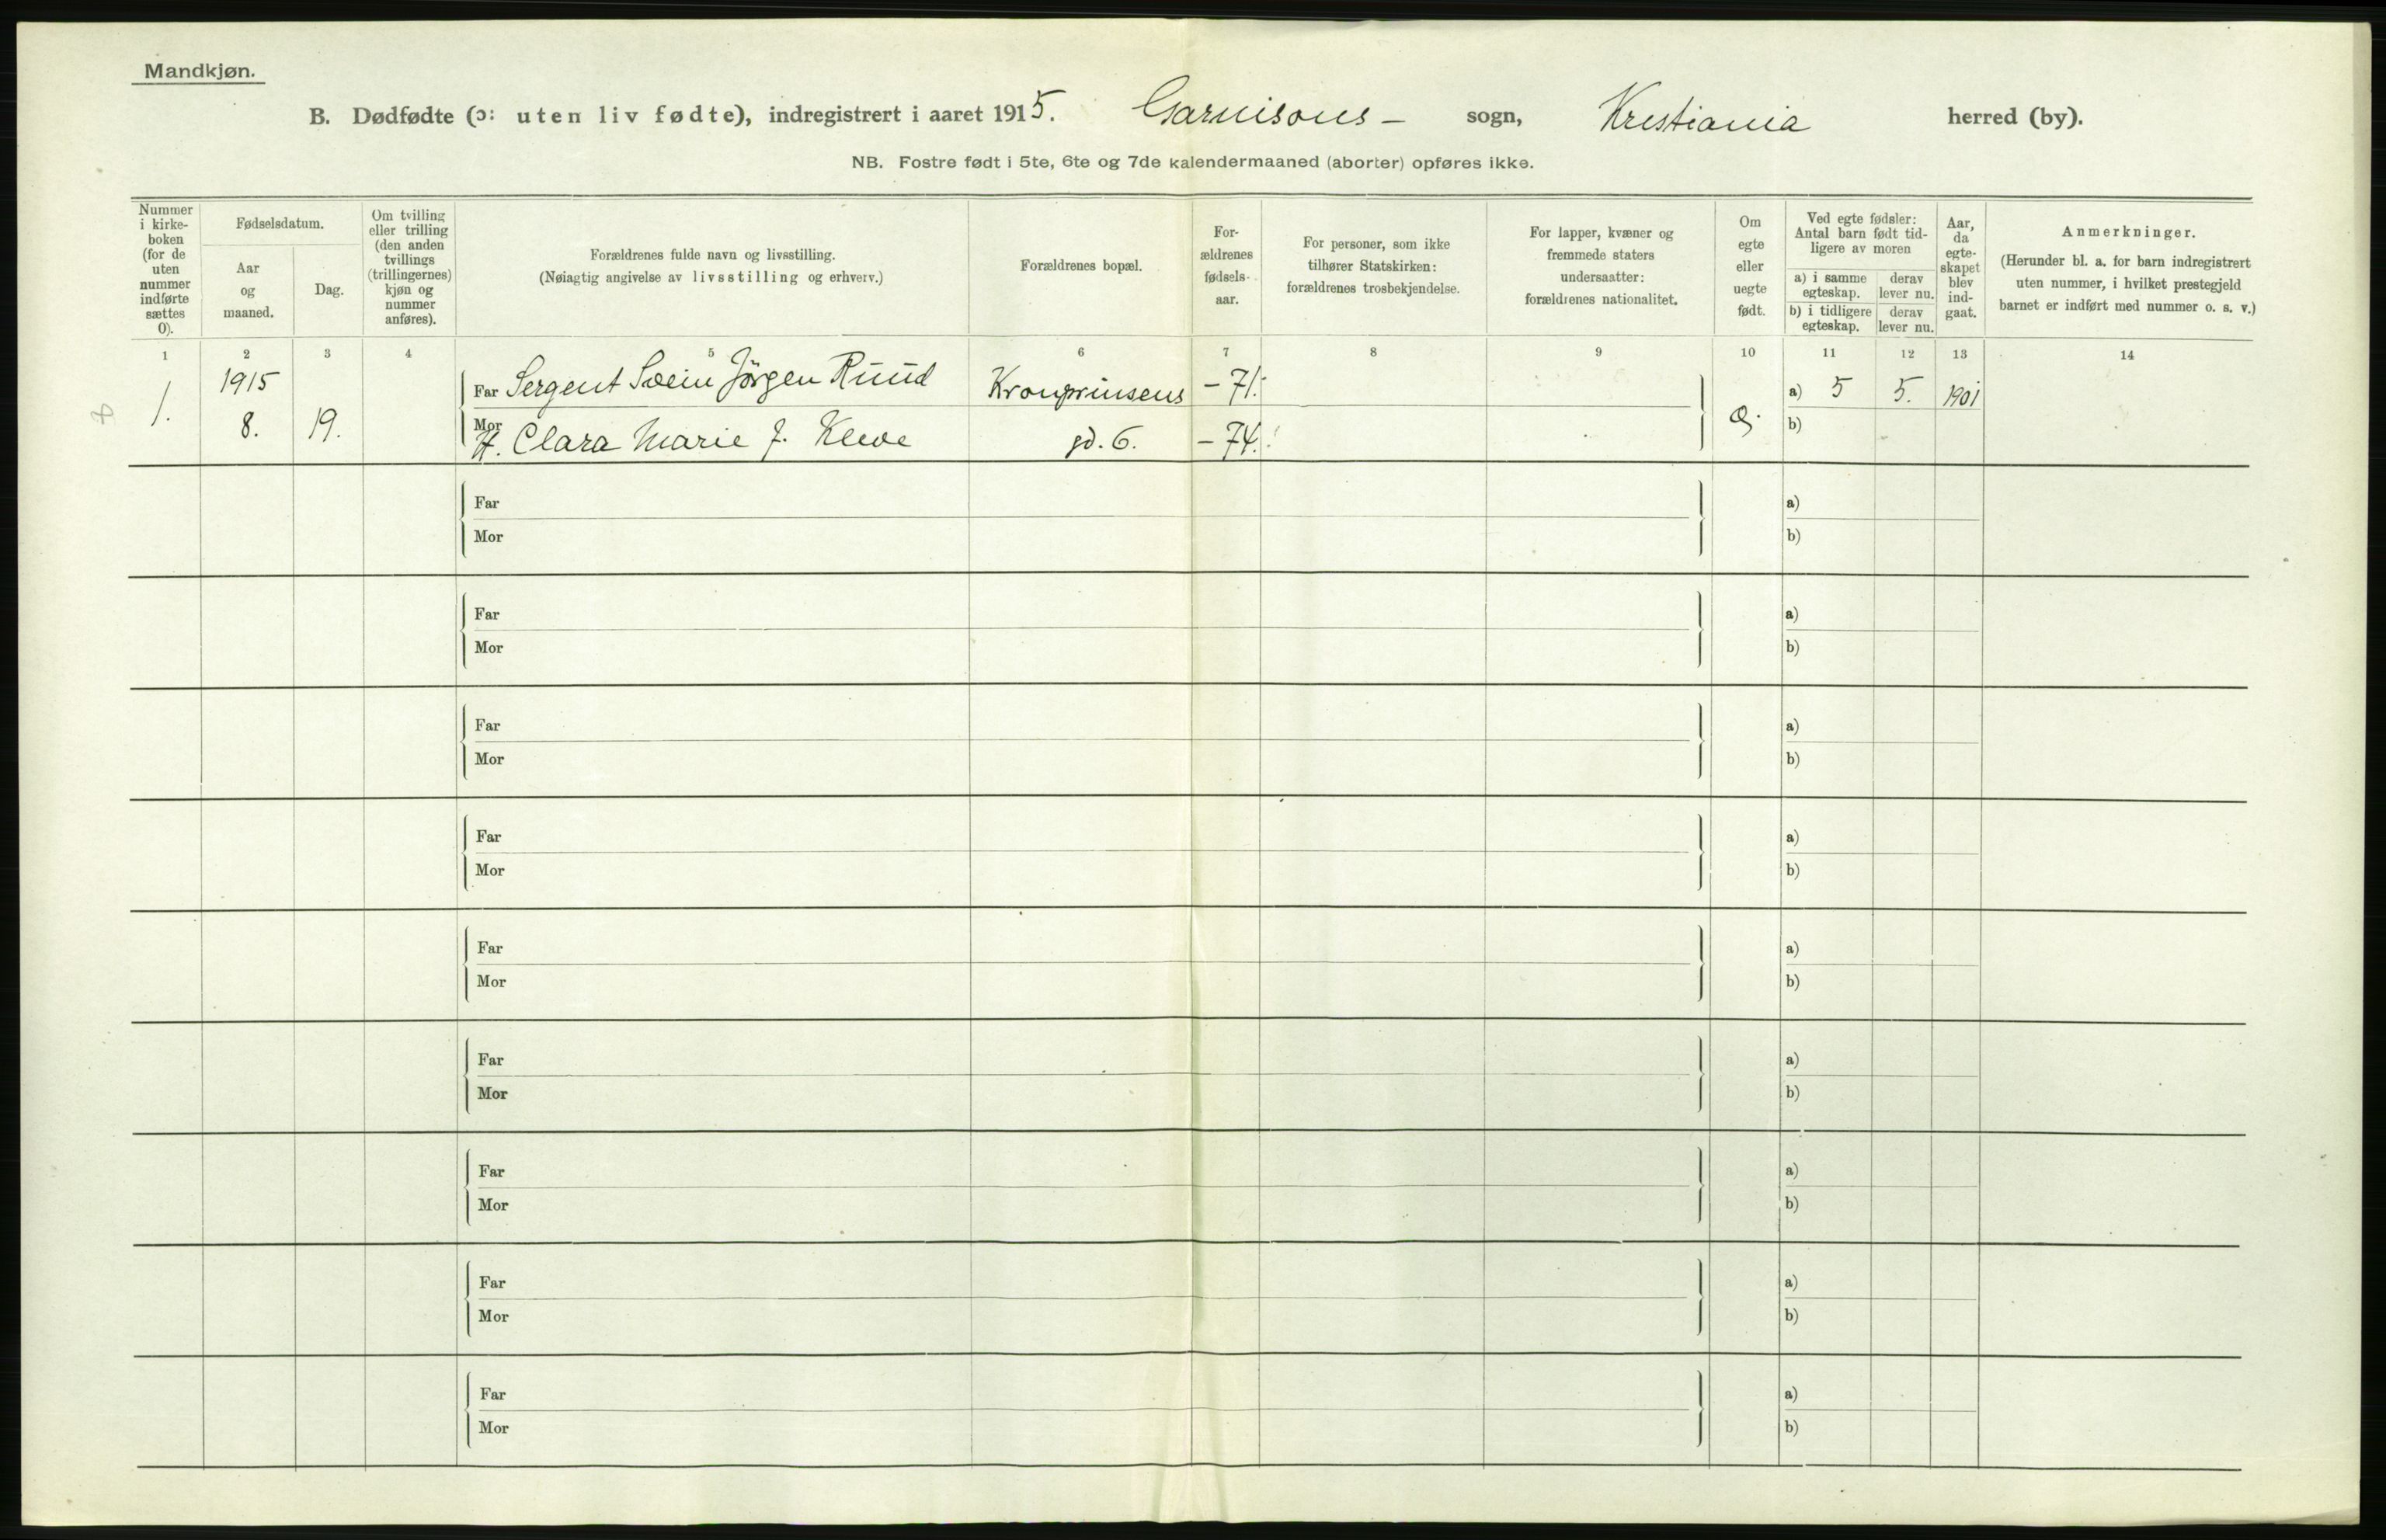 Mandkjøn.
B. Dødfødte (ɔ: uten liv fødte), indregistrert i aaret 1915. Garnisons - sogn, Kristiania herred (by).
NB. Fostre født i 5te, 6te og 7de kalendermaaned (aborter) opføres ikke.
Nummer i kirke-boken (for de uten nummer indførte sættes 0).
Fødselsdatum.
Aar og maaned.
Dag.
Om tvilling eller trilling (den anden tvillings (trillingernes) kjøn og nummer anføres).
Forældrenes fulde navn og livsstilling.
(Nøiagtig angivelse av livsstilling og erhverv.)
Forældrenes bopæl.
For-ældrenes fødsels-aar.
For personer, som ikke tilhører Statskirken: forældrenes trosbekjendelse.
For lapper, kvæner og fremmede staters undersaatter: forældrenes nationalitet.
Om egte eller uegte født.
Ved egte fødsler: Antal barn født tid-ligere av moren
a) i samme egteskap.
derav lever nu.
b) i tidligere egteskap.
derav lever nu.
Aar, da egte-skapet blev ind-gaat.
Anmerkninger.
(Herunder bl. a. for barn indregistrert uten nummer, i hvilket prestegjeld barnet er indført med nummer o. s. v.)
1 2 3 4 5 6 7 8 9 10 11 12 13 14
1. 1915 8. 19.
Far Sergent Svein Jörgen Ruud Kronprinsens - 71. a) 5 5. 1901
Mor H. Clara Marie f. Kleve gd. 6. - 74. b)
Far a)
Mor b)
Far a)
Mor b)
Far a)
Mor b)
Far a)
Mor b)
Far a)
Mor b)
Far a)
Mor b)
Far a)
Mor b)
Far a)
Mor b)
Far a)
Mor b)